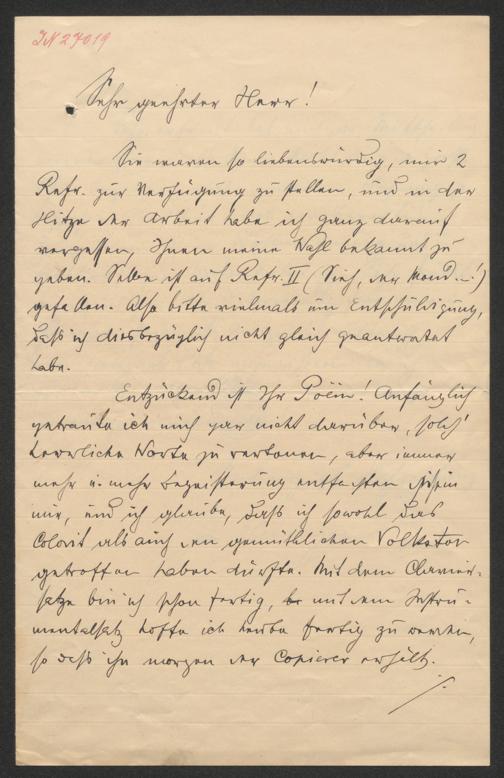 IN 27019
Sehr geehrter Herr!
Sie waren so liebenswürdig, mir 2
Refr. zur Verfügung zu stellen, und in der
Hitze der Arbeit habe ich ganz darauf
vergessen, Ihnen meine Wahl bekannt zu
geben. Selbe ist auf Refr. II (Sieh, der Mond..!)
gefallen. Also bitte vielmals um Entschuldigung,
daß ich diesbezüglich nicht gleich geantwortet
habe.
Entzückend ist Ihr Poëm! Anfänglich
getraute ich mich gar nicht darüber, solch'
herrliche Worte zu vertonen, aber immer
mehr u. mehr Begeisterung entfachten sie in
mir, und ich glaube, daß ich sowohl das
Colorit als auch den gemüthlichen Volkston
getroffen haben dürfte. Mit dem Clavier-
satze bin ich schon fertig, mit dem Instru-
mentalsatz hoffe ich heute fertig zu werden,
so daß ihn morgen der Copierer erhält.